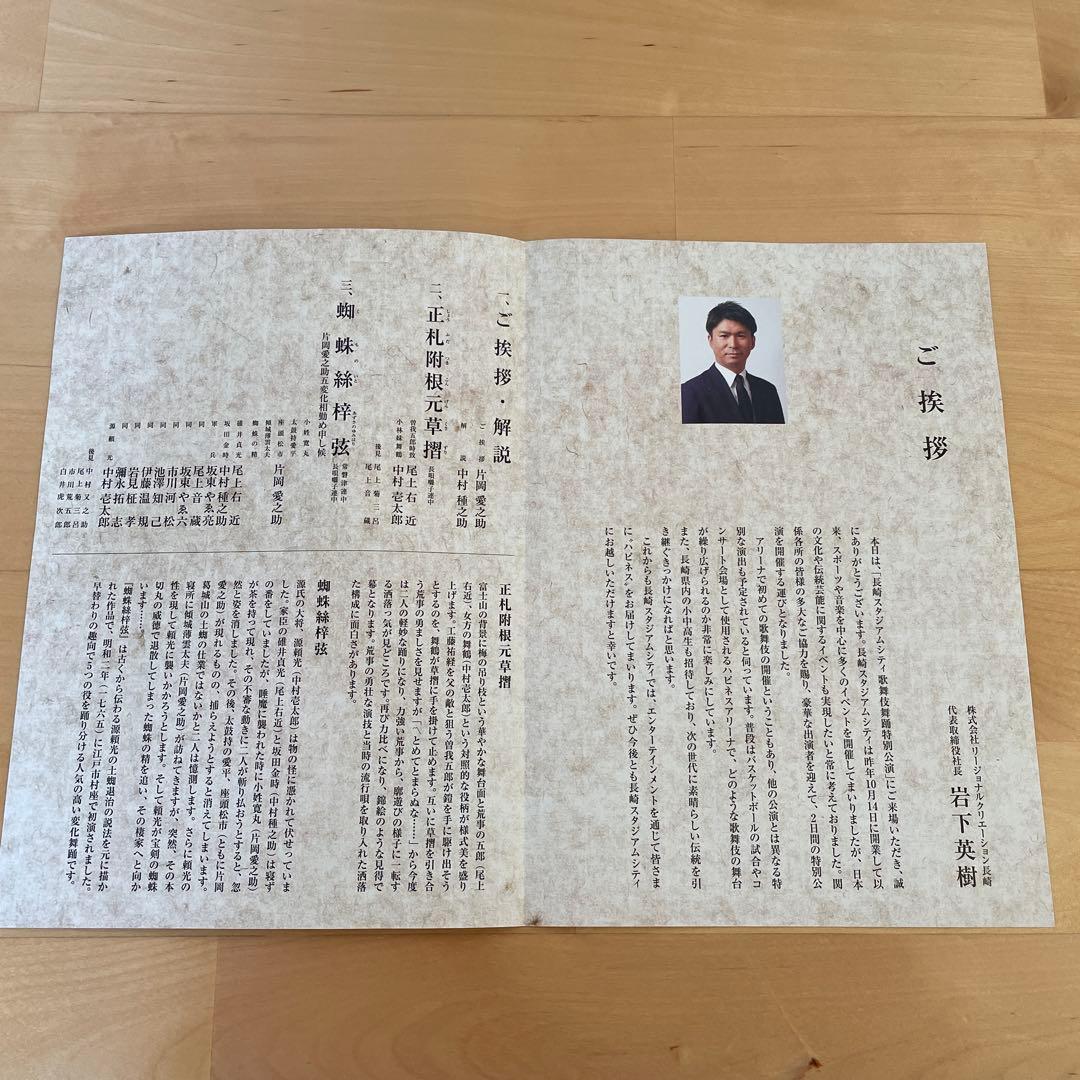 ご挨拶
株式会社リージョナルクリエーション長崎
代表取締役社長 岩下英樹
本日は、「長崎スタジアムシティ歌舞伎舞踊特別公演」にご来場いただき、誠
にありがとうございます。長崎スタジアムシティは昨年10月14日に開業して以
来、スポーツや音楽を中心に多くのイベントを開催してまいりましたが、日本
の文化や伝統芸能に関するイベントも実現したいと常に考えておりました。関
係各所の皆様の多大なご協力を賜り、豪華な出演者を迎えて、2日間の特別公
演を開催する運びとなりました。
アリーナで初めての歌舞伎の開催ということもあり、他の公演とは異なる特
別な演出も予定されていると伺っています。普段はバスケットボールの試合やコ
ンサート会場として使用されるハピネスアリーナで、どのような歌舞伎の舞台
が繰り広げられるのか非常に楽しみにしています。
また、長崎県内の小中高生も招待しており、次の世代に素晴らしい伝統を引
き継ぐきっかけになればと思います。
これからも長崎スタジアムシティでは、エンターテインメントを通じて皆さま
に“ハピネス”をお届けしてまいります。ぜひ今後とも長崎スタジアムシティ
にお越しいただけますと幸いです。
一、ご挨拶・解説
ご挨拶 片岡愛之助
解説 中村種之助
二、正札附根元草摺
しょうふだつきこんげんくさずり
長唄囃子連中
曽我五郎時致 尾上右近
小林妹舞鶴 中村壱太郎
後見 尾上菊三呂
尾上音蔵
三、蜘蛛絲梓弦
くものいとあずさのゆみはり
片岡愛之助五変化相勤め申し候
常磐津連中
長唄囃子連中
小姓寛丸
太鼓持愛平
座頭松市
傾城薄雲太夫
蜘蛛の精
片岡愛之助
碓井貞光 尾上右近
坂田金時 中村種之助
軍兵 坂東やゑ亮
同 尾上音蔵
同 坂東やゑ六
同 市川河松
同 池澤知己
同 伊藤温規
同 岩見柾孝
同 彌永拓志
源頼光 中村壱太郎
後見 中村又之助
尾上菊三呂
市川荒五郎
白井虎次郎
正札附根元草摺
富士山の背景に梅の吊り枝という華やかな舞台面と荒事の五郎(尾上
右近)、女方の舞鶴(中村壱太郎)という対照的な役柄が様式美を盛り
上げます。工藤祐経を父の敵と狙う曽我五郎が鎧を手に駆け出そう
とするのを、舞鶴が草摺に手を掛けて止めます。互いに草摺を引き合
う荒事の勇ましさを見せますが「〽とめてとまらぬな……」から今度
は二人の軽妙な踊りになり、力強い荒事から、廓遊びの様子に一転す
る洒落っ気が見どころです。再び力比べになり、錦絵のような見得で
幕となります。荒事の勇壮な演技と当時の流行唄を取り入れた洒落
た構成に面白さがあります。
蜘蛛絲梓弦
源氏の大将、源頼光(中村壱太郎)は物の怪に憑かれて伏せっていま
した。家臣の碓井貞光(尾上右近)と坂田金時(中村種之助)は寝ず
の番をしていましたが、睡魔に襲われた時に小姓寛丸(片岡愛之助)
が茶を持って現れ、その不審な動きに二人が斬り払おうとすると、忽
然と姿を消しました。その後、太鼓持の愛平、座頭松市(ともに片岡
愛之助)が現れるものの、捕らえようとすると消えてしまいます。
葛城山の土蜘の仕業ではないかと二人は憶測します。さらに頼光の
寝所に傾城薄雲太夫(片岡愛之助)が訪ねてきますが、突然、その本
性を現して頼光に襲いかかろうとします。そして頼光が宝剣の蜘蛛
切丸の威徳で退散してしまった蜘蛛の精を追い、その棲家へと向か
います……。
『蜘蛛絲梓弦』は古くから伝わる源頼光の土蜘退治の説法を元に描か
れた作品で、明和二年(一七六五)に江戸市村座で初演されました。
早替わりの趣向で5つの役を踊り分ける人気の高い変化舞踊です。